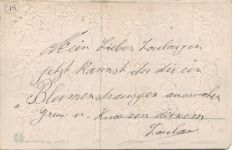 15
Mein Liebes
jetzt kannst du dir ein
Blumenstrausgen aussuchen
Gruss u. Kuss von deinem